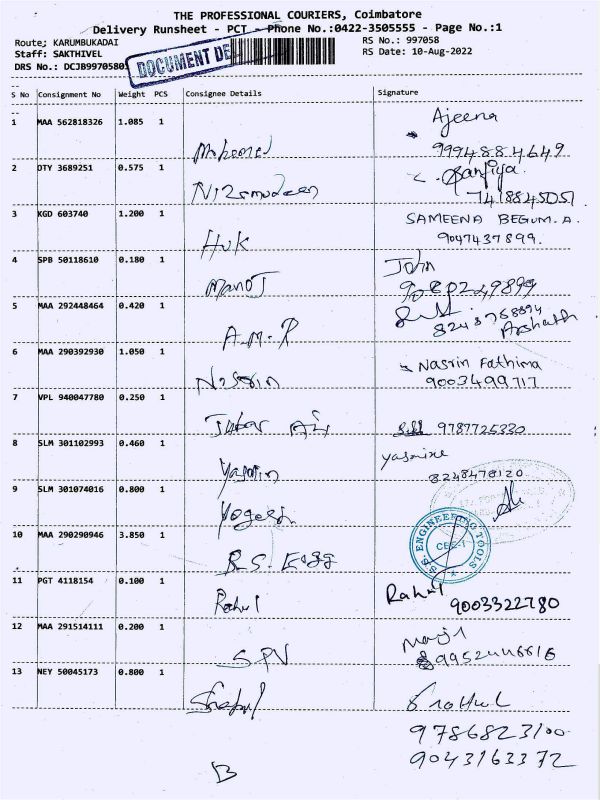 THE PROFESSIONAL COURIERS, Coimbatore
Delivery Runsheet - PCT - Phone No.:0422-3505555 - Page No.:1
Route: KARUMBUKADAI RS No.: 997058
Staff: SAKTHIVEL RS Date: 10-Aug-2022
DRS No.: DCJB9970580
DOCUMENT DE
S No Consignment No Weight PCS Consignee Details Signature
1 MAA 562818326 1.085 1 Ajeena
9994884649
2 OTY 3689251 0.575 1 Nizamudeen Sanfiya
7418845051
3 KGD 603740 1.200 1 Huk SAMEENA BEGUM. A.
9047437899.
4 SPB 50118610 0.180 1 Manoj John
5 MAA 292448464 0.420 1 A.M.R Arshath
6 MAA 290392930 1.050 1 Nasrin Nasrin Fathima
9003499717
7 VPL 940047780 0.250 1 9787725330
8 SLM 301102993 0.460 1 Yasmin yasmine
8248478120
9 SLM 301074016 0.800 1 Yogesh
10 MAA 290290946 3.850 1 R.S. Engg
S.S. ENGINEERING TOOLS
CBE-1
11 PGT 4118154 0.100 1 Rahul Rahul
9003322780
12 MAA 291514111 0.200 1 SPN
9952446616
13 NEY 50045173 0.800 1
9786823100
9043163372
B